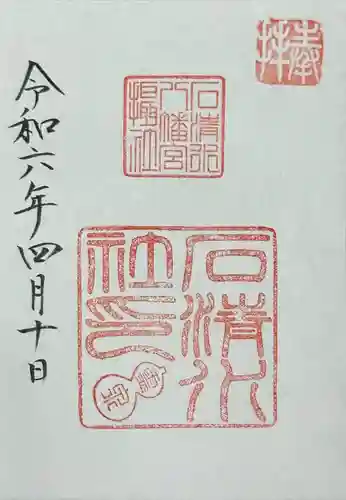 奉拝
石清水
八幡宮
攝社
石清水
社印
令和六年四月十日